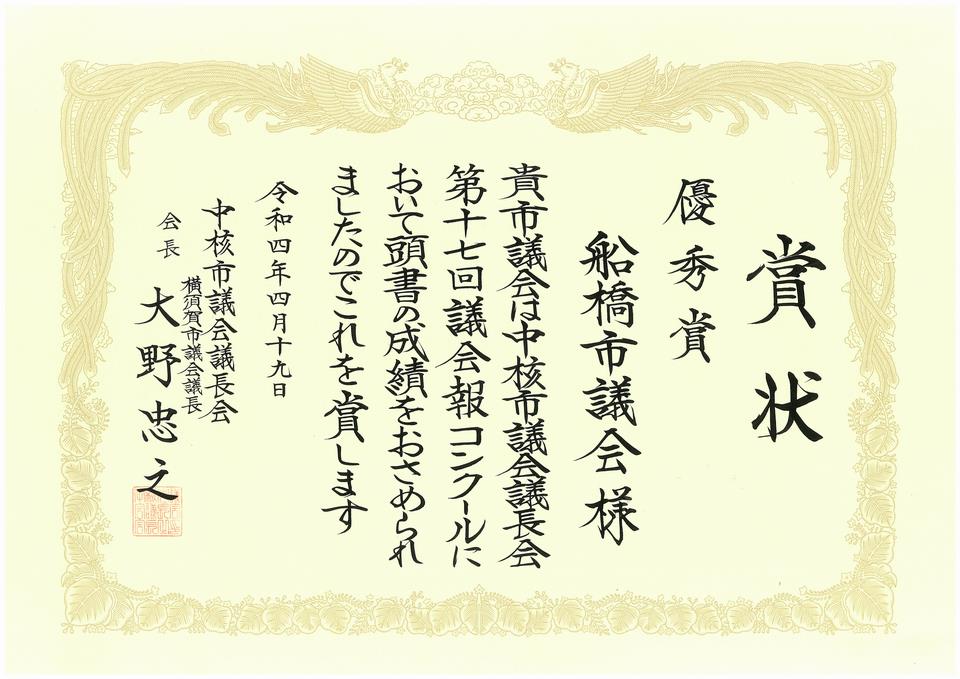 賞状
優秀賞
船橋市議会様
貴市議会は中核市議会議長会
第十七回議会報コンクールに
おいて頭書の成績をおさめられ
ましたのでこれを賞します
令和四年四月十九日
中核市議会議長会
横須賀市議会議長
会長 大野忠之